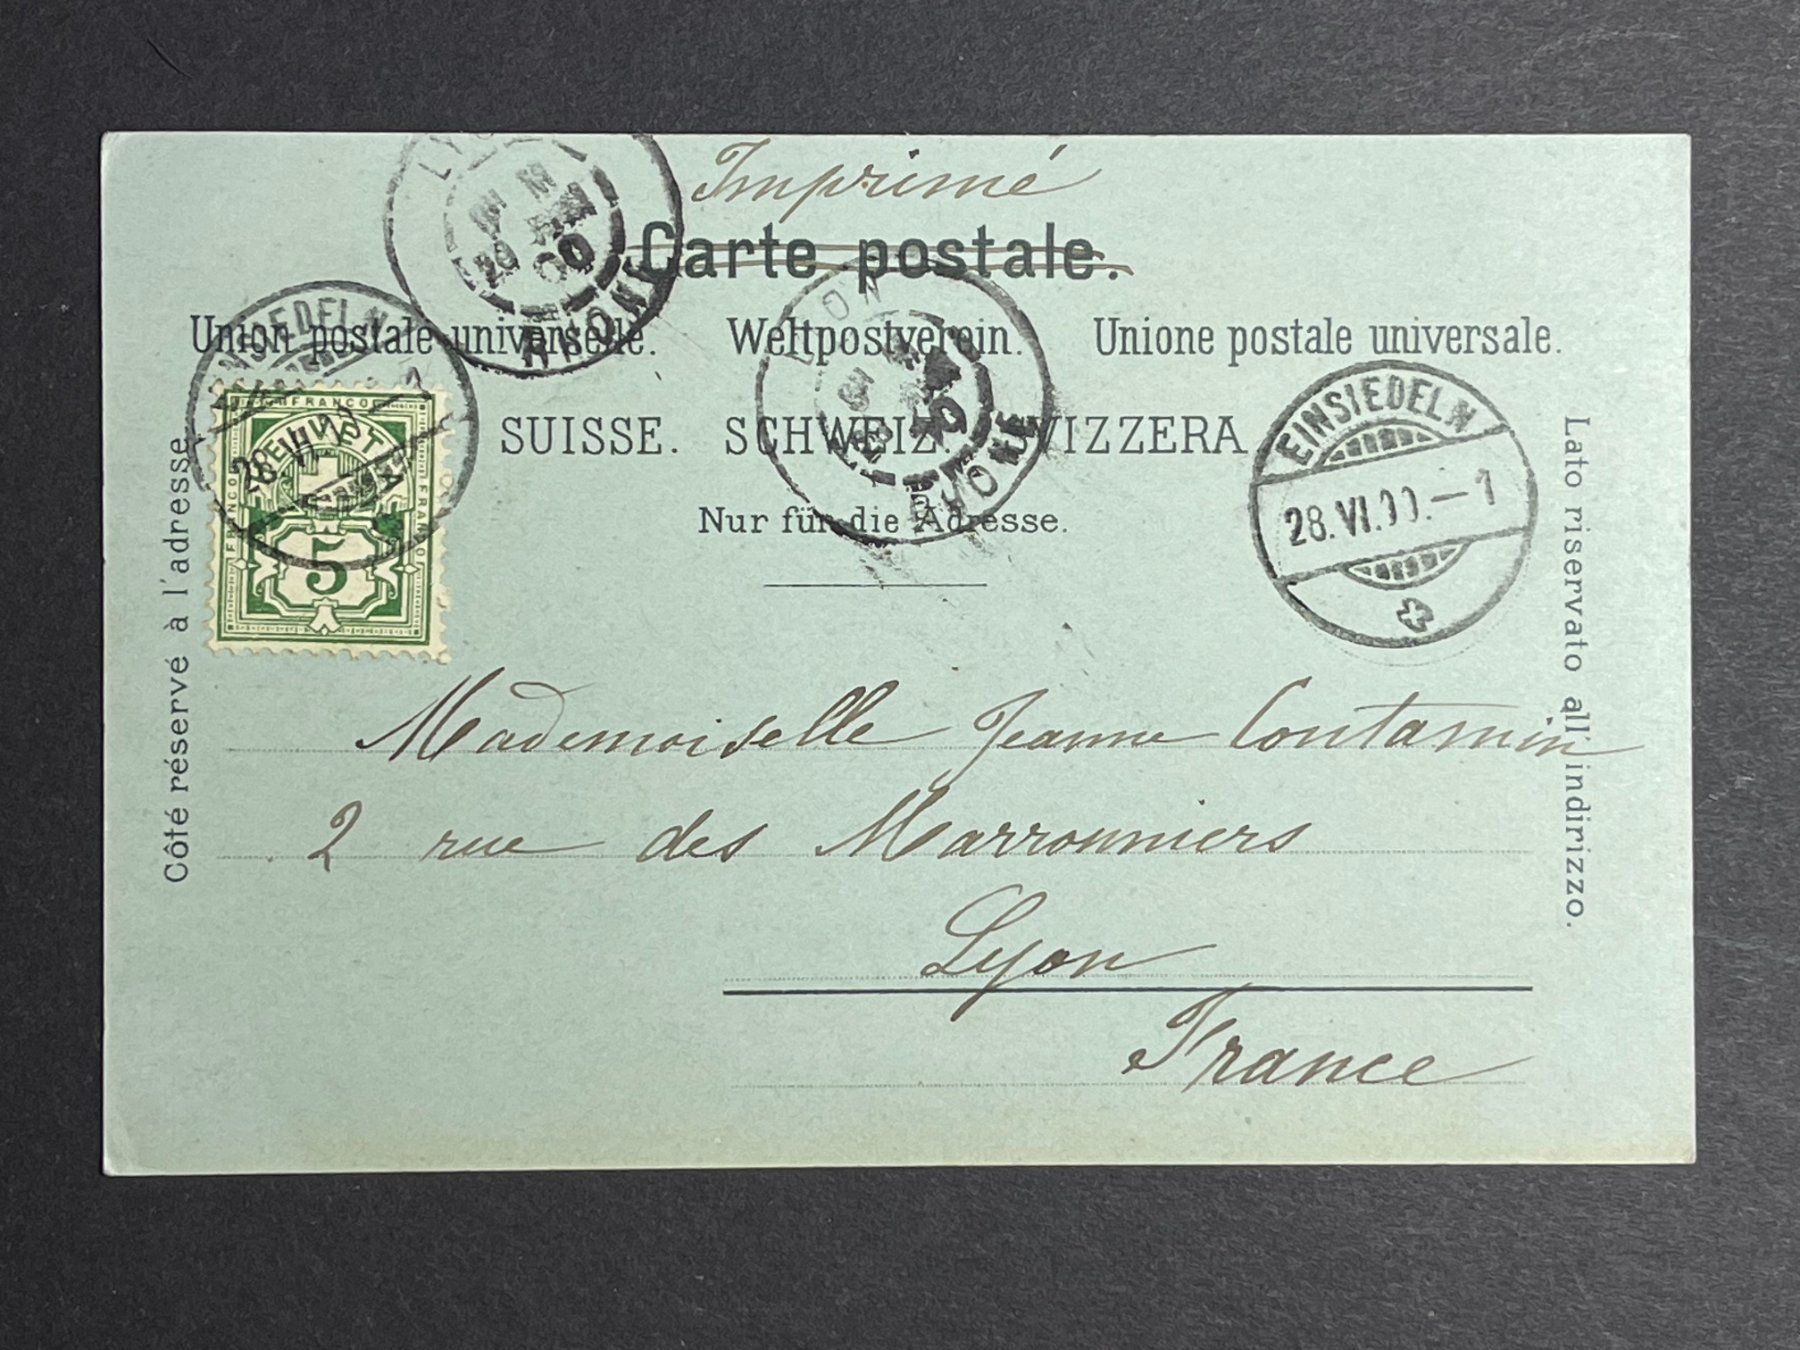 Imprimé
Carte postale.
Union postale universelle. Weltpostverein. Unione postale universale.
SUISSE. SCHWEIZ. SVIZZERA
Nur für die Adresse.
Côté réservé à l'adresse.
Lato riservato all' indirizzo.
EINSIEDELN
28.VI.00.-1
EINSIEDELN
28.VI
FRANCO
HELVETIA
5
LYON
RHONE
LYON
RHONE
Mademoiselle Jeanne Contamin
2 rue des Marronniers
Lyon
France